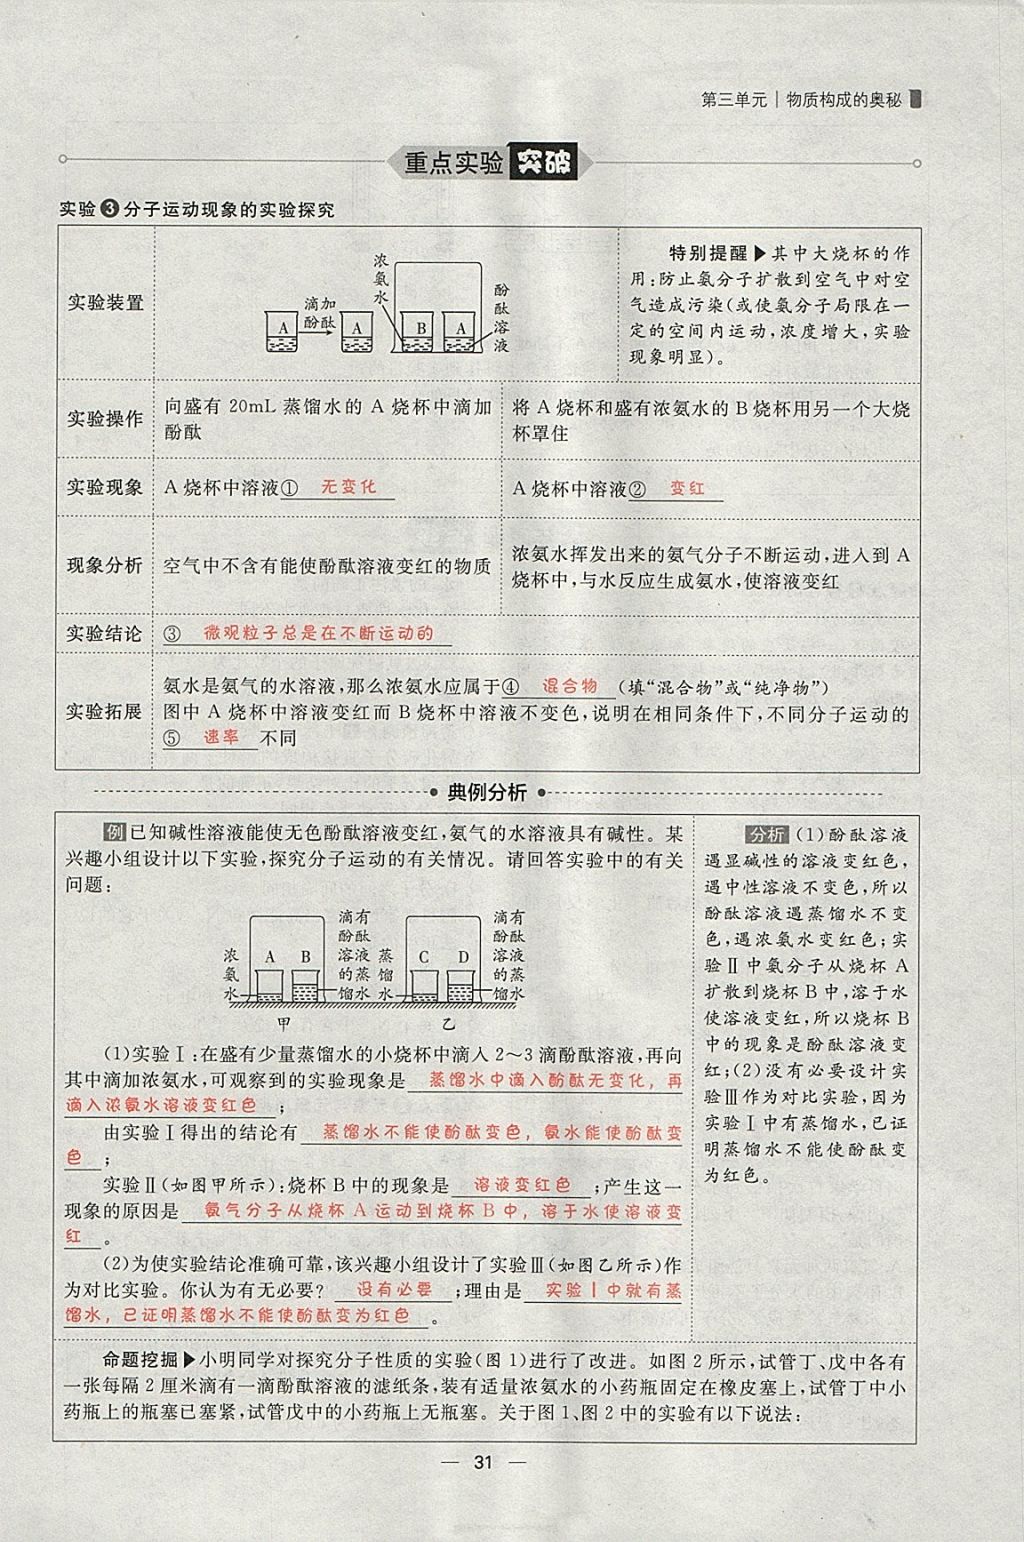 第三单元｜物质构成的奥秘
重点实验突破
实验❸分子运动现象的实验探究
实验装置
浓氨水
滴加
酚酞
A
A
B
A
酚酞溶液
特别提醒▶其中大烧杯的作
用:防止氨分子扩散到空气中对空
气造成污染(或使氨分子局限在一
定的空间内运动,浓度增大,实验
现象明显)。
实验操作
向盛有 20mL 蒸馏水的 A 烧杯中滴加
酚酞
将 A 烧杯和盛有浓氨水的 B 烧杯用另一个大烧
杯罩住
实验现象
A 烧杯中溶液① 无变化
A 烧杯中溶液② 变红
现象分析
空气中不含有能使酚酞溶液变红的物质
浓氨水挥发出来的氨气分子不断运动,进入到 A
烧杯中,与水反应生成氨水,使溶液变红
实验结论
③ 微观粒子总是在不断运动的
实验拓展
氨水是氨气的水溶液,那么浓氨水应属于④ 混合物 (填“混合物”或“纯净物”)
图中 A 烧杯中溶液变红而 B 烧杯中溶液不变色,说明在相同条件下,不同分子运动的
⑤ 速率 不同
典例分析
例 已知碱性溶液能使无色酚酞溶液变红,氨气的水溶液具有碱性。某
兴趣小组设计以下实验,探究分子运动的有关情况。请回答实验中的有关
问题:
浓氨水
A B
滴有
酚酞
溶液
的蒸
馏水
蒸馏水
C D
滴有
酚酞
溶液
的蒸
馏水
甲
乙
(1)实验Ⅰ:在盛有少量蒸馏水的小烧杯中滴入 2～3 滴酚酞溶液,再向
其中滴加浓氨水,可观察到的实验现象是 蒸馏水中滴入酚酞无变化，再
滴入浓氨水溶液变红色 ;
由实验Ⅰ得出的结论有 蒸馏水不能使酚酞变色，氨水能使酚酞变
色 ;
实验Ⅱ(如图甲所示):烧杯 B 中的现象是 溶液变红色 ;产生这一
现象的原因是 氨气分子从烧杯 A 运动到烧杯 B 中，溶于水使溶液变
红 。
(2)为使实验结论准确可靠,该兴趣小组设计了实验Ⅲ(如图乙所示)作
为对比实验。你认为有无必要? 没有必要 ;理由是 实验Ⅰ中就有蒸
馏水，已证明蒸馏水不能使酚酞变为红色 。
分析 (1)酚酞溶液
遇显碱性的溶液变红色,
遇中性溶液不变色,所以
酚酞溶液遇蒸馏水不变
色,遇浓氨水变红色;实
验Ⅱ中氨分子从烧杯 A
扩散到烧杯 B 中,溶于水
使溶液变红,所以烧杯 B
中的现象是酚酞溶液变
红;(2)没有必要设计实
验Ⅲ作为对比实验,因为
实验Ⅰ中有蒸馏水,已证
明蒸馏水不能使酚酞变
为红色。
命题挖掘▶小明同学对探究分子性质的实验(图 1)进行了改进。如图 2 所示,试管丁、戊中各有
一张每隔 2 厘米滴有一滴酚酞溶液的滤纸条,装有适量浓氨水的小药瓶固定在橡皮塞上,试管丁中小
药瓶上的瓶塞已塞紧,试管戊中的小药瓶上无瓶塞。关于图 1、图 2 中的实验有以下说法:
— 31 —